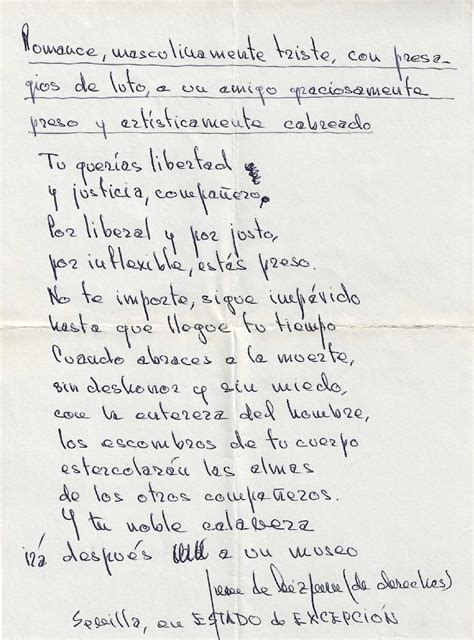 Romance, masculinamente triste, con presa-
gios de luto, a un amigo graciosamente
preso y artísticamente cabreado
Tu querías libertad
y justicia, compañero.
Por liberal y por justo,
por inflexible, estás preso.
No te importe, sigue impávido
hasta que llegue tu tiempo
Cuando abraces a la muerte,
sin deshonor y sin miedo,
con la entereza del hombre,
los escombros de tu cuerpo
estercolarán las almas
de los otros compañeros.
Y tu noble calavera
irá después a un museo
(de derechas)
Sevilla, en ESTADO de EXCEPCIÓN